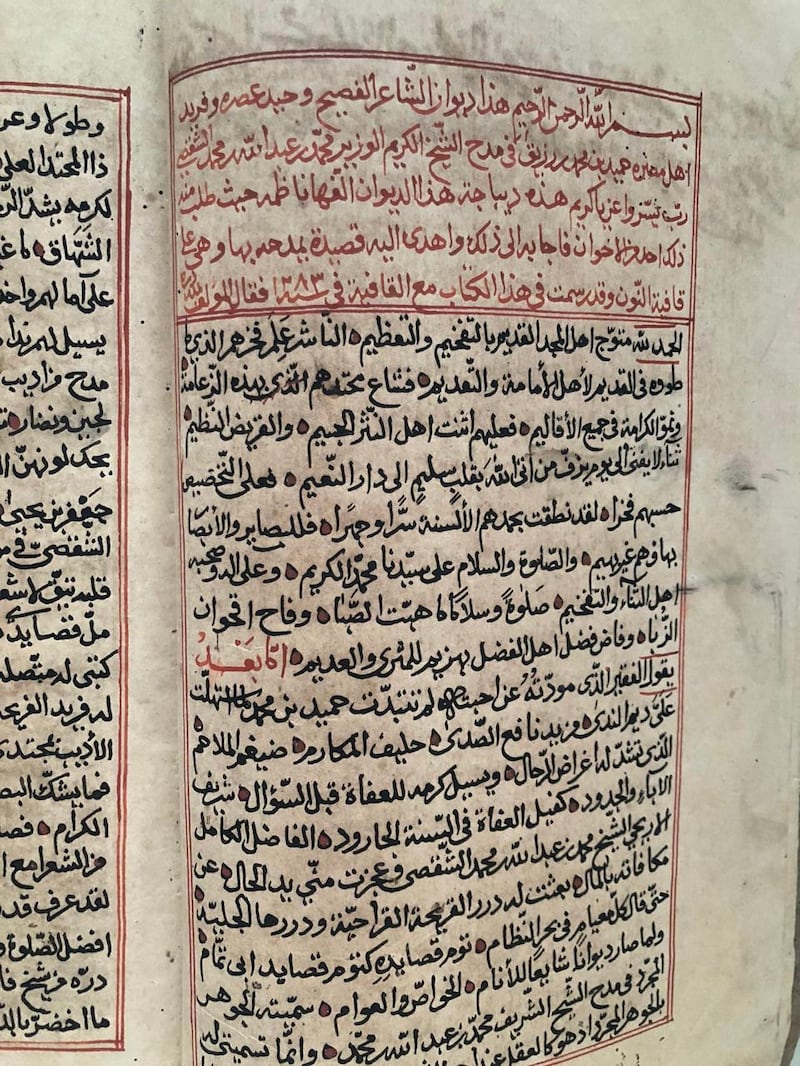 بسم الله الرحمن الرحيم هذا ديوان الشاعر الفصيح وحيد عصره وفريد
اهل مصره حميد بن محمد بن رزيق في مدح الشيخ الكريم الوزير محمد بن عبد الله بن محمد الشقصي
رب تيسر واعن يا كريم هذه ديباجة هذا الديوان الفها ناظمه حيث طلب منه
ذلك احد الاخوان فاجابه الى ذلك واهدى اليه قصيدة يمدحه بها وهي على
قافية النون وقد رسمت في هذا الكتاب مع القافية في سنة ١٢٨٣ فقال المولف
الحمد لله متوج اهل المجد القديم بالتفخيم والتعظيم الناشر علم فخرهم الذي
طوده في القديم لأهل الأمامة والتقديم فشاع محتدهم الذي بهذه الزعامة
الكرامة في جميع الأقاليم فعليهم اثنت اهل النثر الجسيم والقريض النظيم
ثناء لا يفنى الى يوم يزف من أتى الله بقلب سليم الى دار النعيم فعلى التخصيص
حسبهم فخرا لقد نطقت بحمدهم الألسنة سرًا وجهرًا فللبصاير والأبصار
بها وهم غير بهيم والصلوة والسلام على سيدنا محمد الكريم وعلى اله وصحبه
اهل الثناء والتفخيم صلوةً وسلامًا ما هبت الصبا وفاح اقحوان
الربا وفاض فضل اهل الفضل للمثري والعديم اما بعد
يقول الفقير الذي مودته عن احبته لم تتبدد حميد بن محمد ما انهلت
علي ديم الندى نافع الصدى حليف المكارم ضيغم الملاحم
الذي تشد له اغراض الرجال ويسيل كرمه للعفاة قبل السؤال شريف
الاباء والجدود كفيل العفاة في السنة الجارود الفاضل الكامل
الاريحي الشيخ محمد بن عبد الله بن محمد الشقصي وعجزت مني يد الحال عن
مكافاته بالمال بعثت له درر القريحة القراحية ودررها الجلية
حتى قال كل معيام في بحر النظام توم قصايده كتوم قصايد ابى تمام
ولما صار ديوانًا شايعًا للأنام الخواص والعوام سميته الجوهر
المجرد في مدح الشيخ الشريف محمد بن عبد الله بن محمد وانما تسميتي له
بالجوهر المجرد اذ هو كالعقل
وطولا وعر
ذا المحتد العلي
لكرمه يشد الر
على آمالهم واخذ
يسيل لهم ندا
مدح من اديب
لجين ونضار
يحك لونهن
جعفر بن يحيى
الشقصي في مد
مل قصايد
كنتى له متصله
له فريد القريحة
الأديب مجتدى
فما يشك البص
الكرام فص
من الشعر مع ا
لقد عرف قد
افضل الصلوة و
دره من شخ فا
ما اخضر بالد